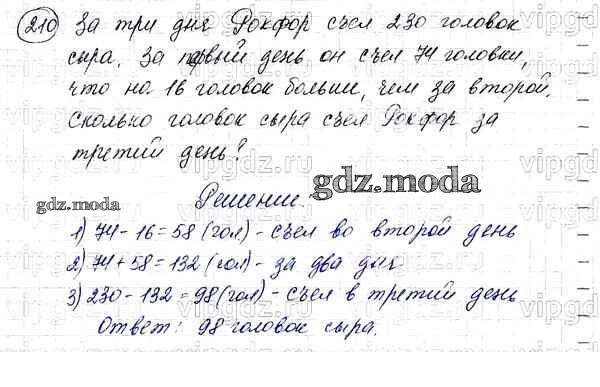 210 За три дня Рокфор съел 230 головок
сыра. За первый день он съел 74 головки,
что на 16 головок больше, чем за второй.
Сколько головок сыра съел Рокфор за
третий день?
Решение.
gdz.moda
gdz.moda
1) 74 - 16 = 58 (гол) - съел во второй день
2) 74 + 58 = 132 (гол) - за два дня
3) 230 - 132 = 98 (гол) - съел в третий день
Ответ: 98 головок сыра.